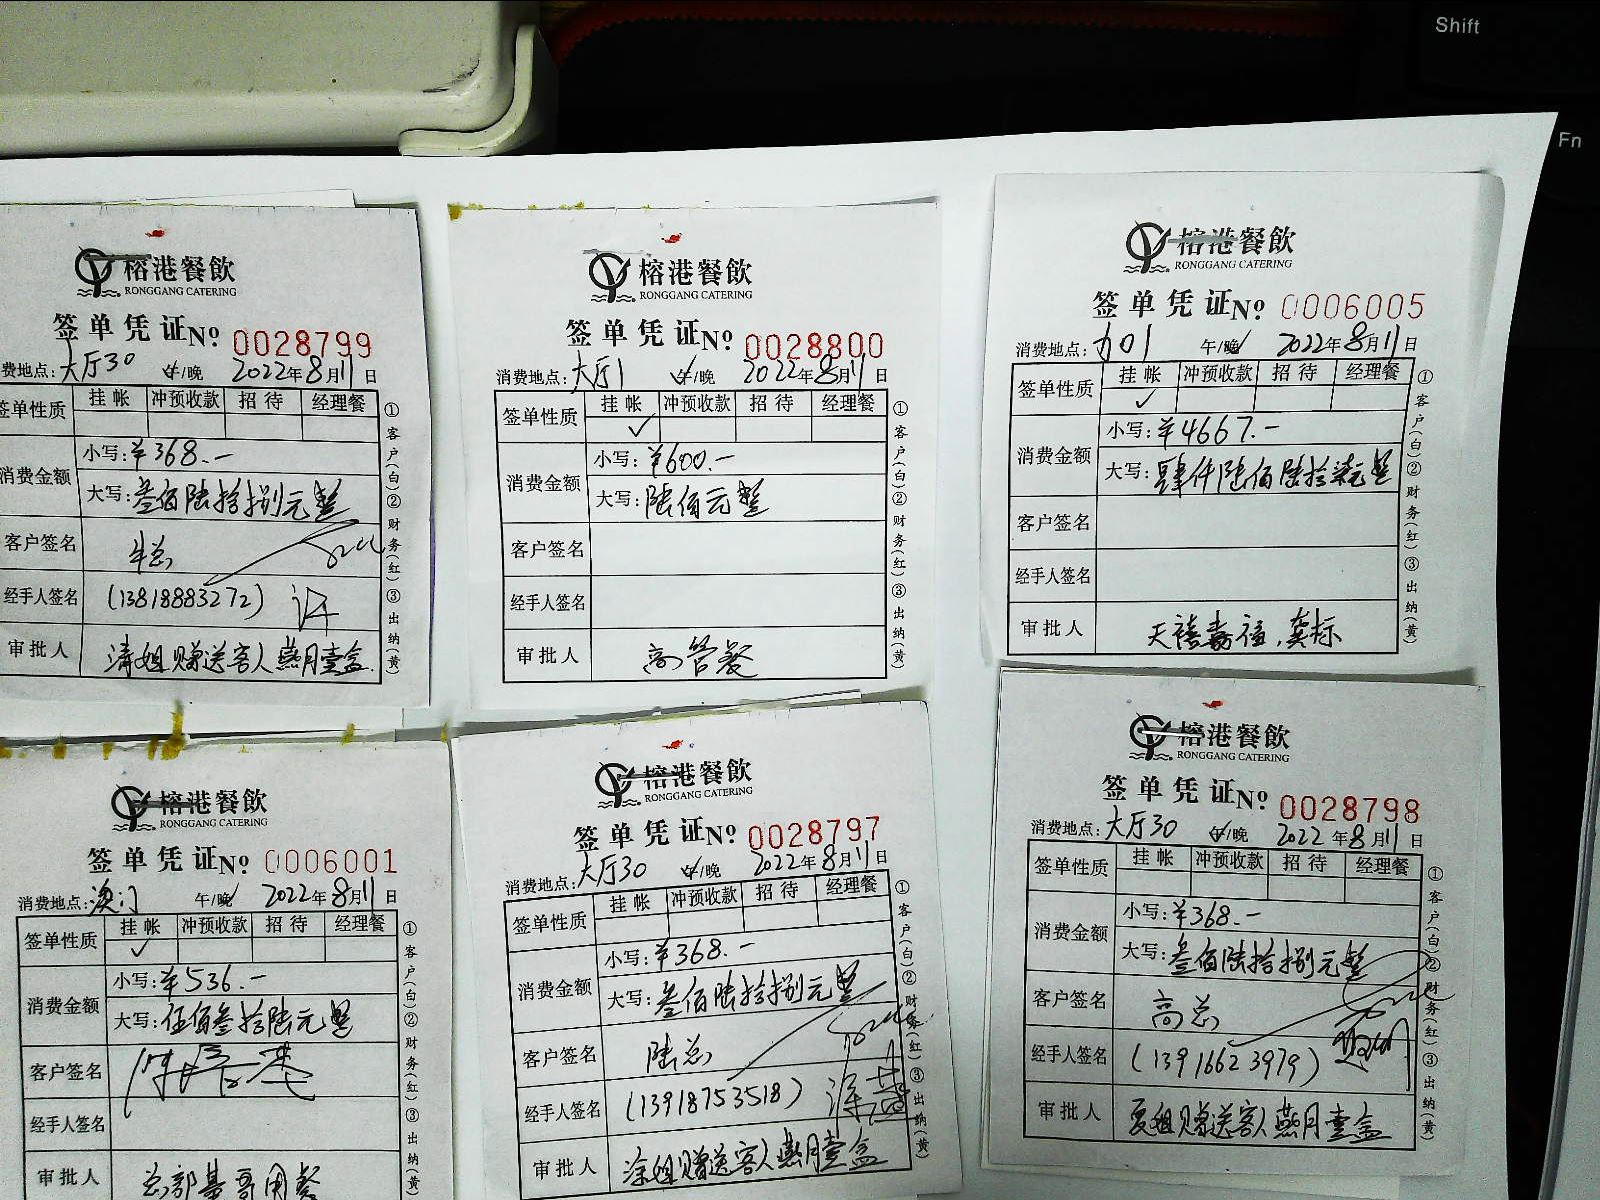 榕港餐飲
RONGGANG CATERING
签单凭证No 0028799
费地点:大厅30 午/晚 2022年8月11日
签单性质 挂帐 冲预收款 招待 经理餐
消费金额 小写:¥368.-
大写:叁佰陆拾捌元整
客户签名 牛总
经手人签名 (13818883272)
审批人 清姐赠送客人燕月壹盒.
①客户(白)②财务(红)③出纳(黄)
榕港餐飲
RONGGANG CATERING
签单凭证No 0028800
消费地点:大厅1 午/晚 2022年8月11日
签单性质 挂帐 冲预收款 招待 经理餐
消费金额 小写:¥600.-
大写:陆佰元整
客户签名
经手人签名
审批人 高管餐
①客户(白)②财务(红)③出纳(黄)
榕港餐飲
RONGGANG CATERING
签单凭证No 0006005
消费地点: 午/晚 2022年8月11日
签单性质 挂帐 冲预收款 招待 经理餐
消费金额 小写:¥4667.-
大写:肆仟陆佰陆拾柒元整
客户签名
经手人签名
审批人 天禧嘉福,龚标
①客户(白)②财务(红)③出纳(黄)
榕港餐飲
RONGGANG CATERING
签单凭证No 0006001
消费地点:澳门 午/晚 2022年8月11日
签单性质 挂帐 冲预收款 招待 经理餐
消费金额 小写:¥536.-
大写:伍佰叁拾陆元整
客户签名
经手人签名
审批人 总部基哥用餐
①客户(白)②财务(红)③出纳(黄)
榕港餐飲
RONGGANG CATERING
签单凭证No 0028797
消费地点:大厅30 午/晚 2022年8月11日
签单性质 挂帐 冲预收款 招待 经理餐
消费金额 小写:¥368.-
大写:叁佰陆拾捌元整
客户签名 陆总
经手人签名 (13918753518)
审批人 涂姐赠送客人燕月壹盒
①客户(白)②财务(红)③出纳(黄)
榕港餐飲
RONGGANG CATERING
签单凭证No 0028798
消费地点:大厅30 午/晚 2022年8月11日
签单性质 挂帐 冲预收款 招待 经理餐
消费金额 小写:¥368.-
大写:叁佰陆拾捌元整
客户签名 高总
经手人签名 (13916623979)
审批人 夏姐赠送客人燕月壹盒
①客户(白)②财务(红)③出纳(黄)
Shift
Fn